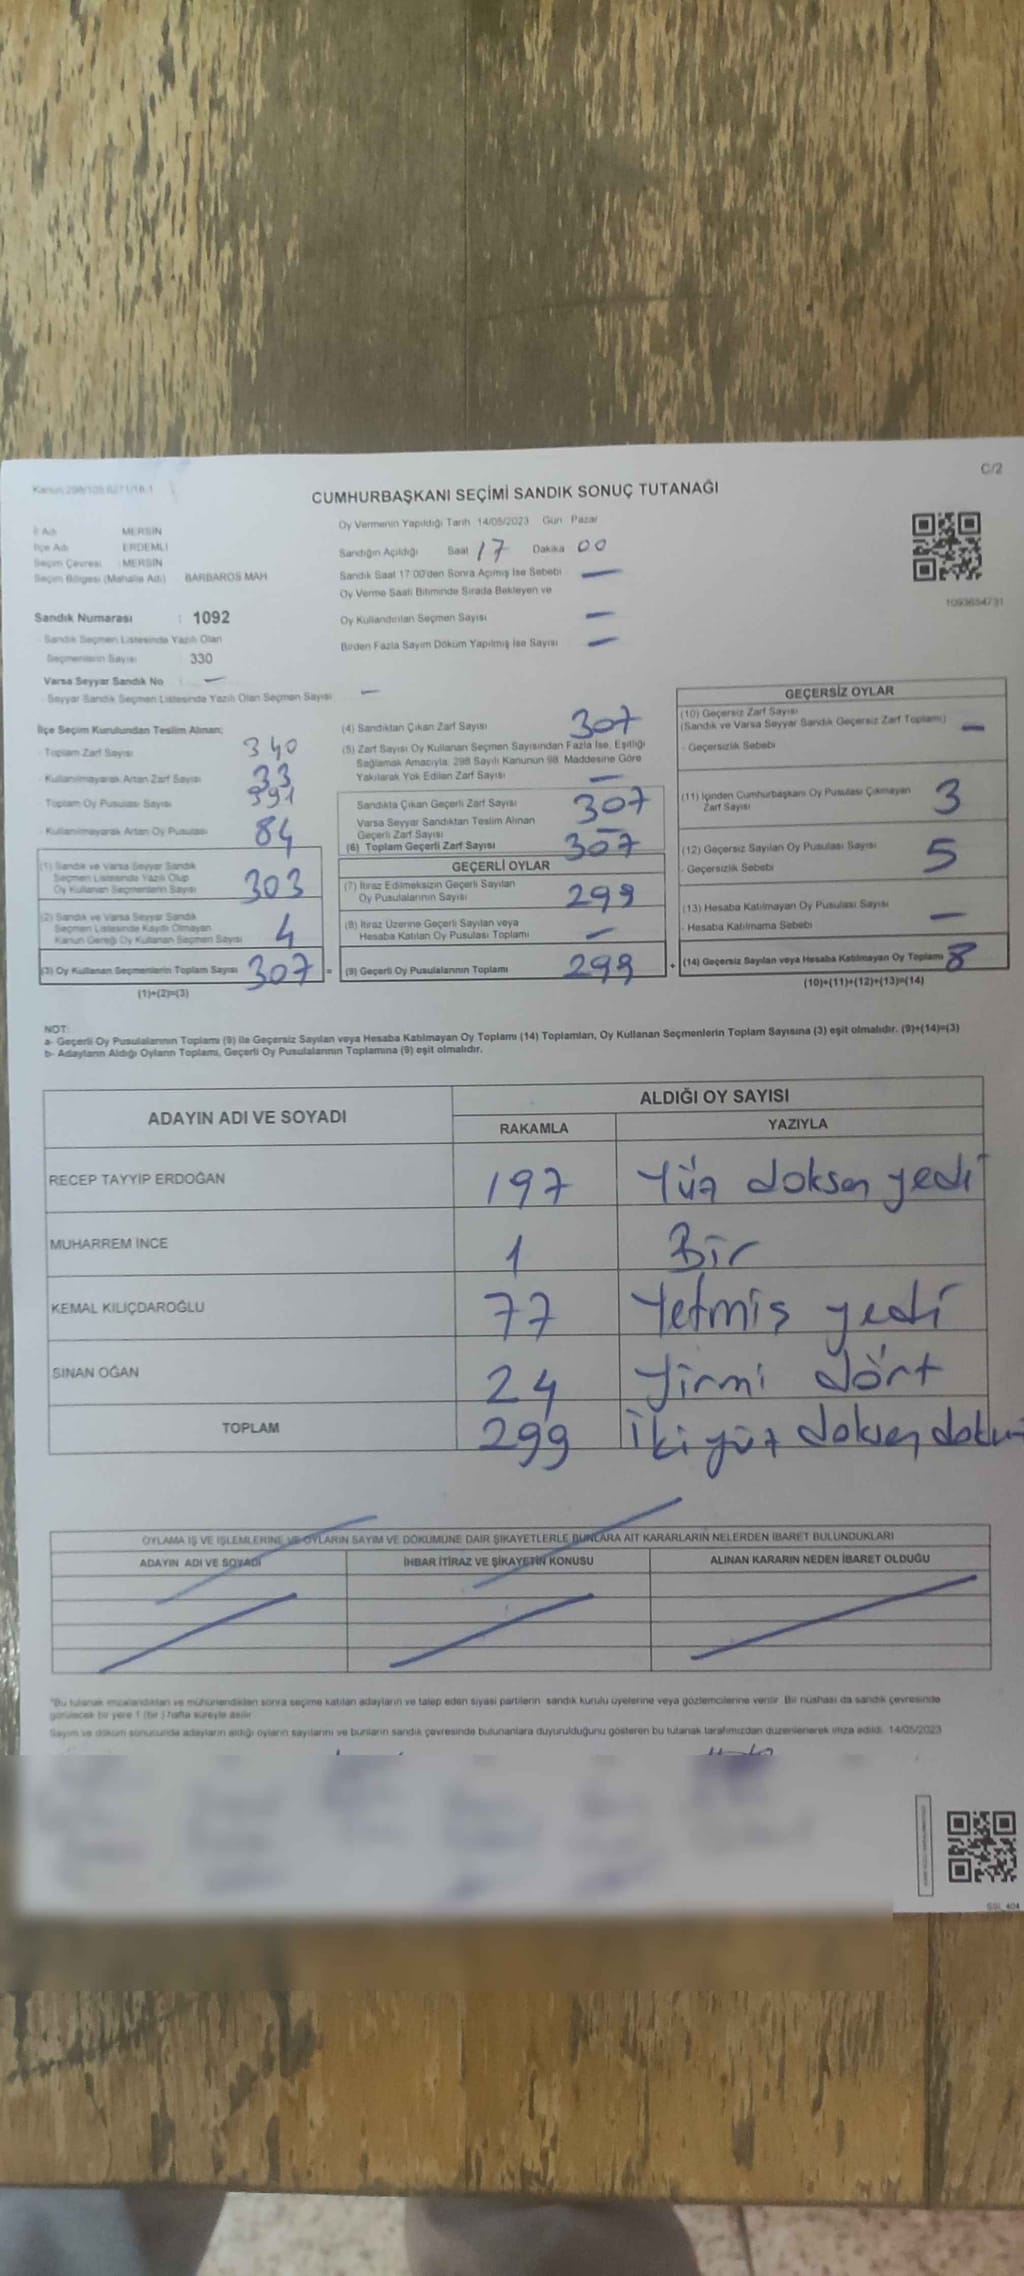 C/2
CUMHURBAŞKANI SEÇİMİ SANDIK SONUÇ TUTANAĞI
İl Adı : MERSİN
İlçe Adı : ERDEMLİ
Seçim Çevresi : MERSİN
Seçim Bölgesi (Mahalle Adı) BARBAROS MAH
Sandık Numarası : 1092
Sandık Seçmen Listesinde Yazılı Olan
Seçmenlerin Sayısı : 330
Varsa Seyyar Sandık No : —
- Seyyar Sandık Seçmen Listesinde Yazılı Olan Seçmen Sayısı —
Oy Vermenin Yapıldığı Tarih 14/05/2023 Gün Pazar
Sandığın Açıldığı Saat 17 Dakika 00
Sandık Saat 17:00'den Sonra Açımış İse Sebebi —
Oy Verme Saati Bitiminde Sırada Bekleyen ve
Oy Kullandırılan Seçmen Sayısı —
Birden Fazla Sayım Döküm Yapılmış İse Sayısı —
1093654731
İlçe Seçim Kurulundan Teslim Alınan;
- Toplam Zarf Sayısı 340
- Kullanılmayarak Artan Zarf Sayısı 33
- Toplam Oy Pusulası Sayısı 391
- Kullanılmayarak Artan Oy Pusulası 84
(1) Sandık ve Varsa Seyyar Sandık
Seçmen Listesinde Yazılı Olup
Oy Kullanan Seçmenlerin Sayısı 303
(2) Sandık ve Varsa Seyyar Sandık
Seçmen Listesinde Kayıtlı Olmayan
Kanun Gereği Oy Kullanan Seçmen Sayısı 4
(3) Oy Kullanan Seçmenlerin Toplam Sayısı 307 =
(1)+(2)=(3)
(4) Sandıktan Çıkan Zarf Sayısı 307
(5) Zarf Sayısı Oy Kullanan Seçmen Sayısından Fazla İse, Eşitliği
Sağlamak Amacıyla; 298 Sayılı Kanunun 98. Maddesine Göre
Yakılarak Yok Edilen Zarf Sayısı —
Sandıkta Çıkan Geçerli Zarf Sayısı 307
Varsa Seyyar Sandıktan Teslim Alınan
Geçerli Zarf Sayısı —
(6) Toplam Geçerli Zarf Sayısı 307
GEÇERLİ OYLAR
(7) İtiraz Edilmeksizin Geçerli Sayılan
Oy Pusulalarının Sayısı 299
(8) İtiraz Üzerine Geçerli Sayılan veya
Hesaba Katılan Oy Pusulası Toplamı —
(9) Geçerli Oy Pusulalarının Toplamı 299 +
GEÇERSİZ OYLAR
(10) Geçersiz Zarf Sayısı
(Sandık ve Varsa Seyyar Sandık Geçersiz Zarf Toplamı) —
- Geçersizlik Sebebi
(11) İçinden Cumhurbaşkanı Oy Pusulası Çıkmayan
Zarf Sayısı 3
(12) Geçersiz Sayılan Oy Pusulası Sayısı 5
- Geçersizlik Sebebi
(13) Hesaba Katılmayan Oy Pusulası Sayısı —
- Hesaba Katılmama Sebebi
(14) Geçersiz Sayılan veya Hesaba Katılmayan Oy Toplamı 8
(10)+(11)+(12)+(13)=(14)
NOT:
a- Geçerli Oy Pusulalarının Toplamı (9) ile Geçersiz Sayılan veya Hesaba Katılmayan Oy Toplamı (14) Toplamları, Oy Kullanan Seçmenlerin Toplam Sayısına (3) eşit olmalıdır. (9)+(14)=(3)
b- Adayların Aldığı Oyların Toplamı, Geçerli Oy Pusulalarının Toplamına (9) eşit olmalıdır.
ADAYIN ADI VE SOYADI
ALDIĞI OY SAYISI
RAKAMLA YAZIYLA
RECEP TAYYİP ERDOĞAN 197 Yüz doksan yedi
MUHARREM İNCE 1 Bir
KEMAL KILIÇDAROĞLU 77 Yetmiş yedi
SİNAN OĞAN 24 Yirmi dört
TOPLAM 299 İkiyüz doksan doku
OYLAMA İŞ VE İŞLEMLERİNE VE OYLARIN SAYIM VE DÖKÜMÜNE DAİR ŞİKAYETLERLE BUNLARA AİT KARARLARIN NELERDEN İBARET BULUNDUKLARI
ADAYIN ADI VE SOYADI
İHBAR İTİRAZ VE ŞİKAYETİN KONUSU
ALINAN KARARIN NEDEN İBARET OLDUĞU
"Bu tutanak imzalandıktan ve mühürlendikten sonra seçime katılan adayların ve talep eden siyasi partilerin sandık kurulu üyelerine veya gözlemcilerine verilir. Bir nüshası da sandık çevresinde
görülecek bir yere 1 (bir ) hafta süreyle asılır.
Sayım ve döküm sonucunda adayların aldığı oyların sayılarını ve bunların sandık çevresinde bulunanlara duyurulduğunu gösteren bu tutanak tarafımızdan düzenlenerek imza edildi. 14/05/2023